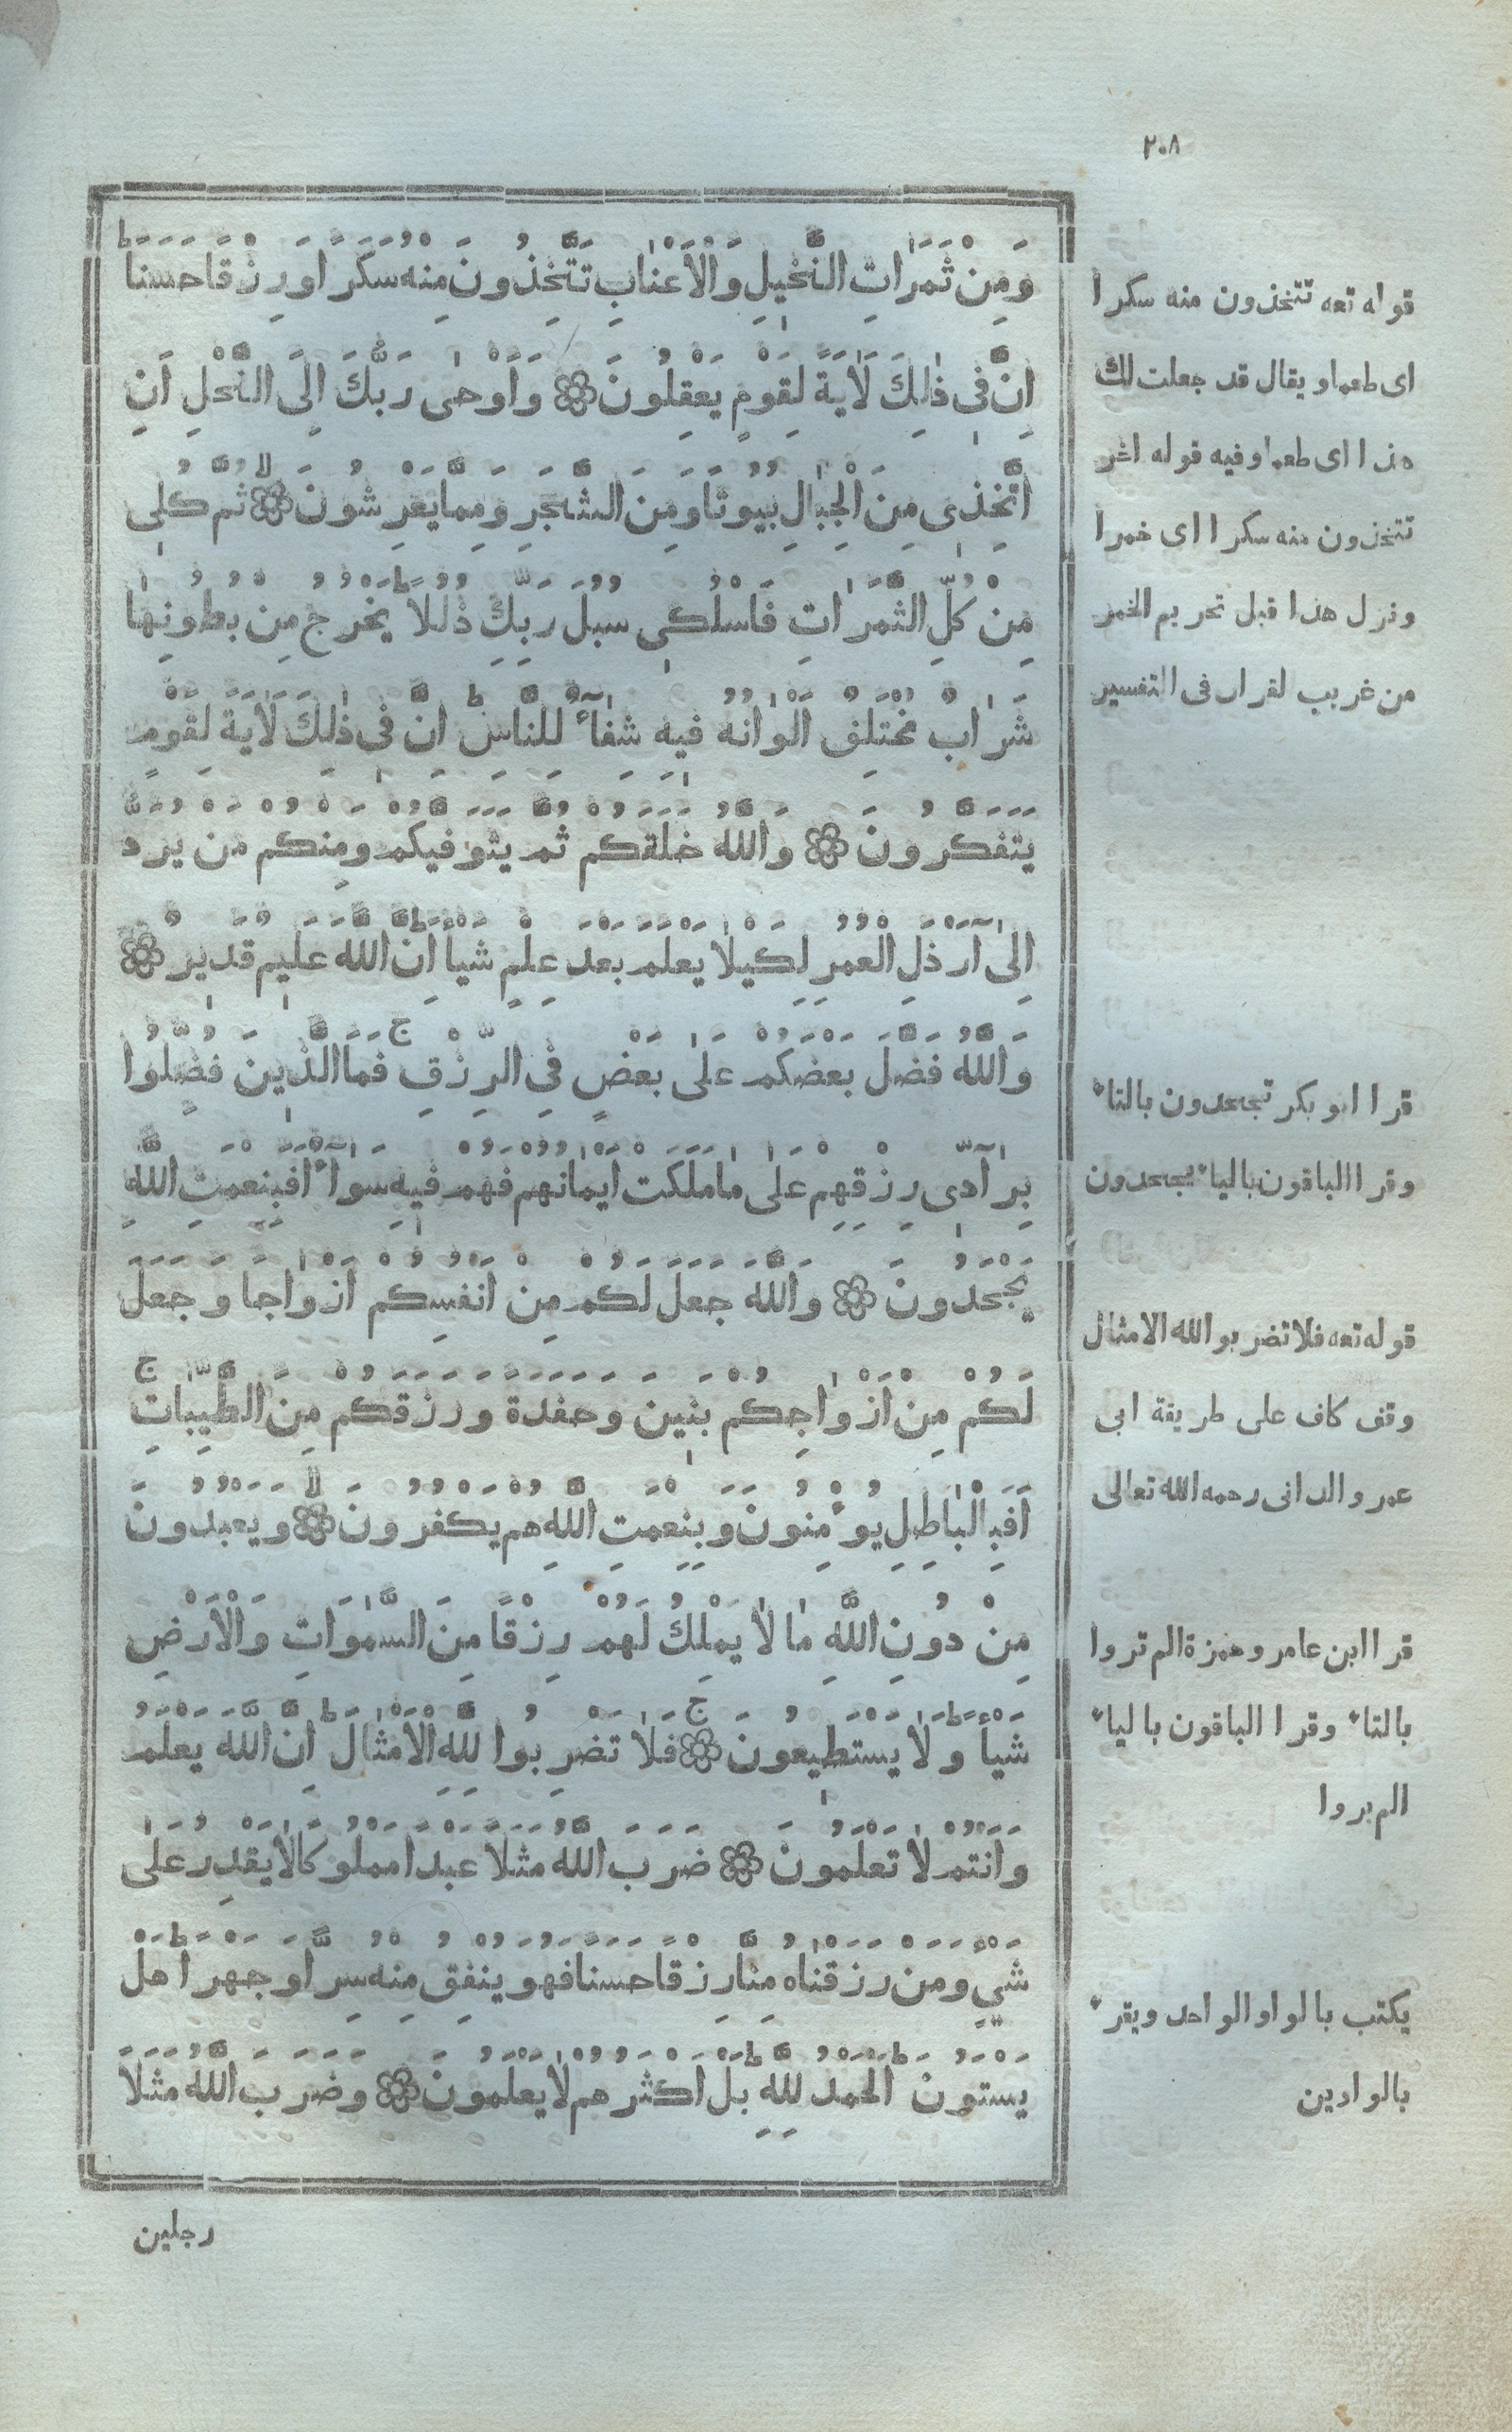 ٢٠٨
وَمِنْ ثَمَرَاتِ النَّخِيلِ وَالْاَعْنَابِ تَتَّخِذُونَ مِنْهُ سَكَرًا وَرِزْقًا حَسَنًا ط
اِنَّ فِى ذٰلِكَ لَاٰيَةً لِقَوْمٍ يَعْقِلُونَ ۞ وَاَوْحٰى رَبُّكَ اِلَى النَّحْلِ اَنِ
اتَّخِذِى مِنَ الْجِبَالِ بُيُوتًا وَمِنَ الشَّجَرِ وَمِمَّا يَعْرِشُونَ ۞ لا ثُمَّ كُلِى
مِنْ كُلِّ الثَّمَرَاتِ فَاسْلُكِى سُبُلَ رَبِّكِ ذُلُلًا ط يَخْرُجُ مِن بُطُونِهَا
شَرَابٌ مُخْتَلِفٌ اَلْوَانُهُ فِيهِ شِفَآءٌ لِلنَّاسِ ط اِنَّ فِى ذٰلِكَ لَاٰيَةً لِقَوْمٍ
يَتَفَكَّرُونَ ۞ وَاللّٰهُ خَلَقَكُمْ ثُمَّ يَتَوَفّٰيكُمْ وَمِنكُم مَن يُرَدُّ
اِلٰى اَرْذَلِ الْعُمُرِ لِكَيْلَا يَعْلَمَ بَعْدَ عِلْمٍ شَيْأً ط اِنَّ اللّٰهَ عَلِيمٌ قَدِيرٌ ۞
وَاللّٰهُ فَضَّلَ بَعْضَكُمْ عَلٰى بَعْضٍ فِى الرِّزْقِ ج فَمَا الَّذِينَ فُضِّلُوا
بِرَآدِّى رِزْقِهِمْ عَلٰى مَا مَلَكَتْ اَيْمَانُهُمْ فَهُمْ فِيهِ سَوَآءٌ اَفَبِنِعْمَتِ اللّٰهِ
يَجْحَدُونَ ۞ وَاللّٰهُ جَعَلَ لَكُمْ مِنْ اَنْفُسِكُمْ اَزْوَاجًا وَجَعَلَ
لَكُمْ مِنْ اَزْوَاجِكُمْ بَنِينَ وَحَفَدَةً وَرَزَقَكُمْ مِنَ الطَّيِّبَاتِ ج
اَفَبِالْبَاطِلِ يُؤْمِنُونَ وَبِنِعْمَتِ اللّٰهِ هُمْ يَكْفُرُونَ ۞ لا وَيَعْبُدُونَ
مِنْ دُونِ اللّٰهِ مَا لَا يَمْلِكُ لَهُمْ رِزْقًا مِنَ السَّمٰوَاتِ وَالْاَرْضِ
شَيْأً ط وَلَا يَسْتَطِيعُونَ ۞ ج فَلَا تَضْرِبُوا لِلّٰهِ الْاَمْثَالَ ط اِنَّ اللّٰهَ يَعْلَمُ
وَاَنْتُمْ لَا تَعْلَمُونَ ۞ ضَرَبَ اللّٰهُ مَثَلًا عَبْدًا مَمْلُوكًا لَا يَقْدِرُ عَلٰى
شَيْءٍ وَمَنْ رَزَقْنَاهُ مِنَّا رِزْقًا حَسَنًا فَهُوَ يُنْفِقُ مِنْهُ سِرًّا وَجَهْرًا ط هَلْ
يَسْتَوُنَ ط اَلْحَمْدُ لِلّٰهِ ط بَلْ اَكْثَرُهُمْ لَا يَعْلَمُونَ ۞ وَضَرَبَ اللّٰهُ مَثَلًا
رجلين
قوله تعه تتخذون منه سكرا
اى طعما ويقال قد جعلت لك
هذا اى طعما وفيه قوله اخر
تتخذون منه سكرا اى خمرا
ونزل هذا قبل تحريم الخمر
من غريب لقران فى التفسير
قرا ابو بكر تجحدون بالتاء
وقرا الباقون بالياء يجحدون
قوله تعه فلا تضربوا لله الامثال
وقف كاف على طريقة ابى
عمرو الدانى رحمه الله تعالى
قرا ابن عامر وحمزة الم تروا
بالتاء وقرا الباقون بالياء
الم يروا
يكتب بالواو الواحد ويقرء
بالواوين